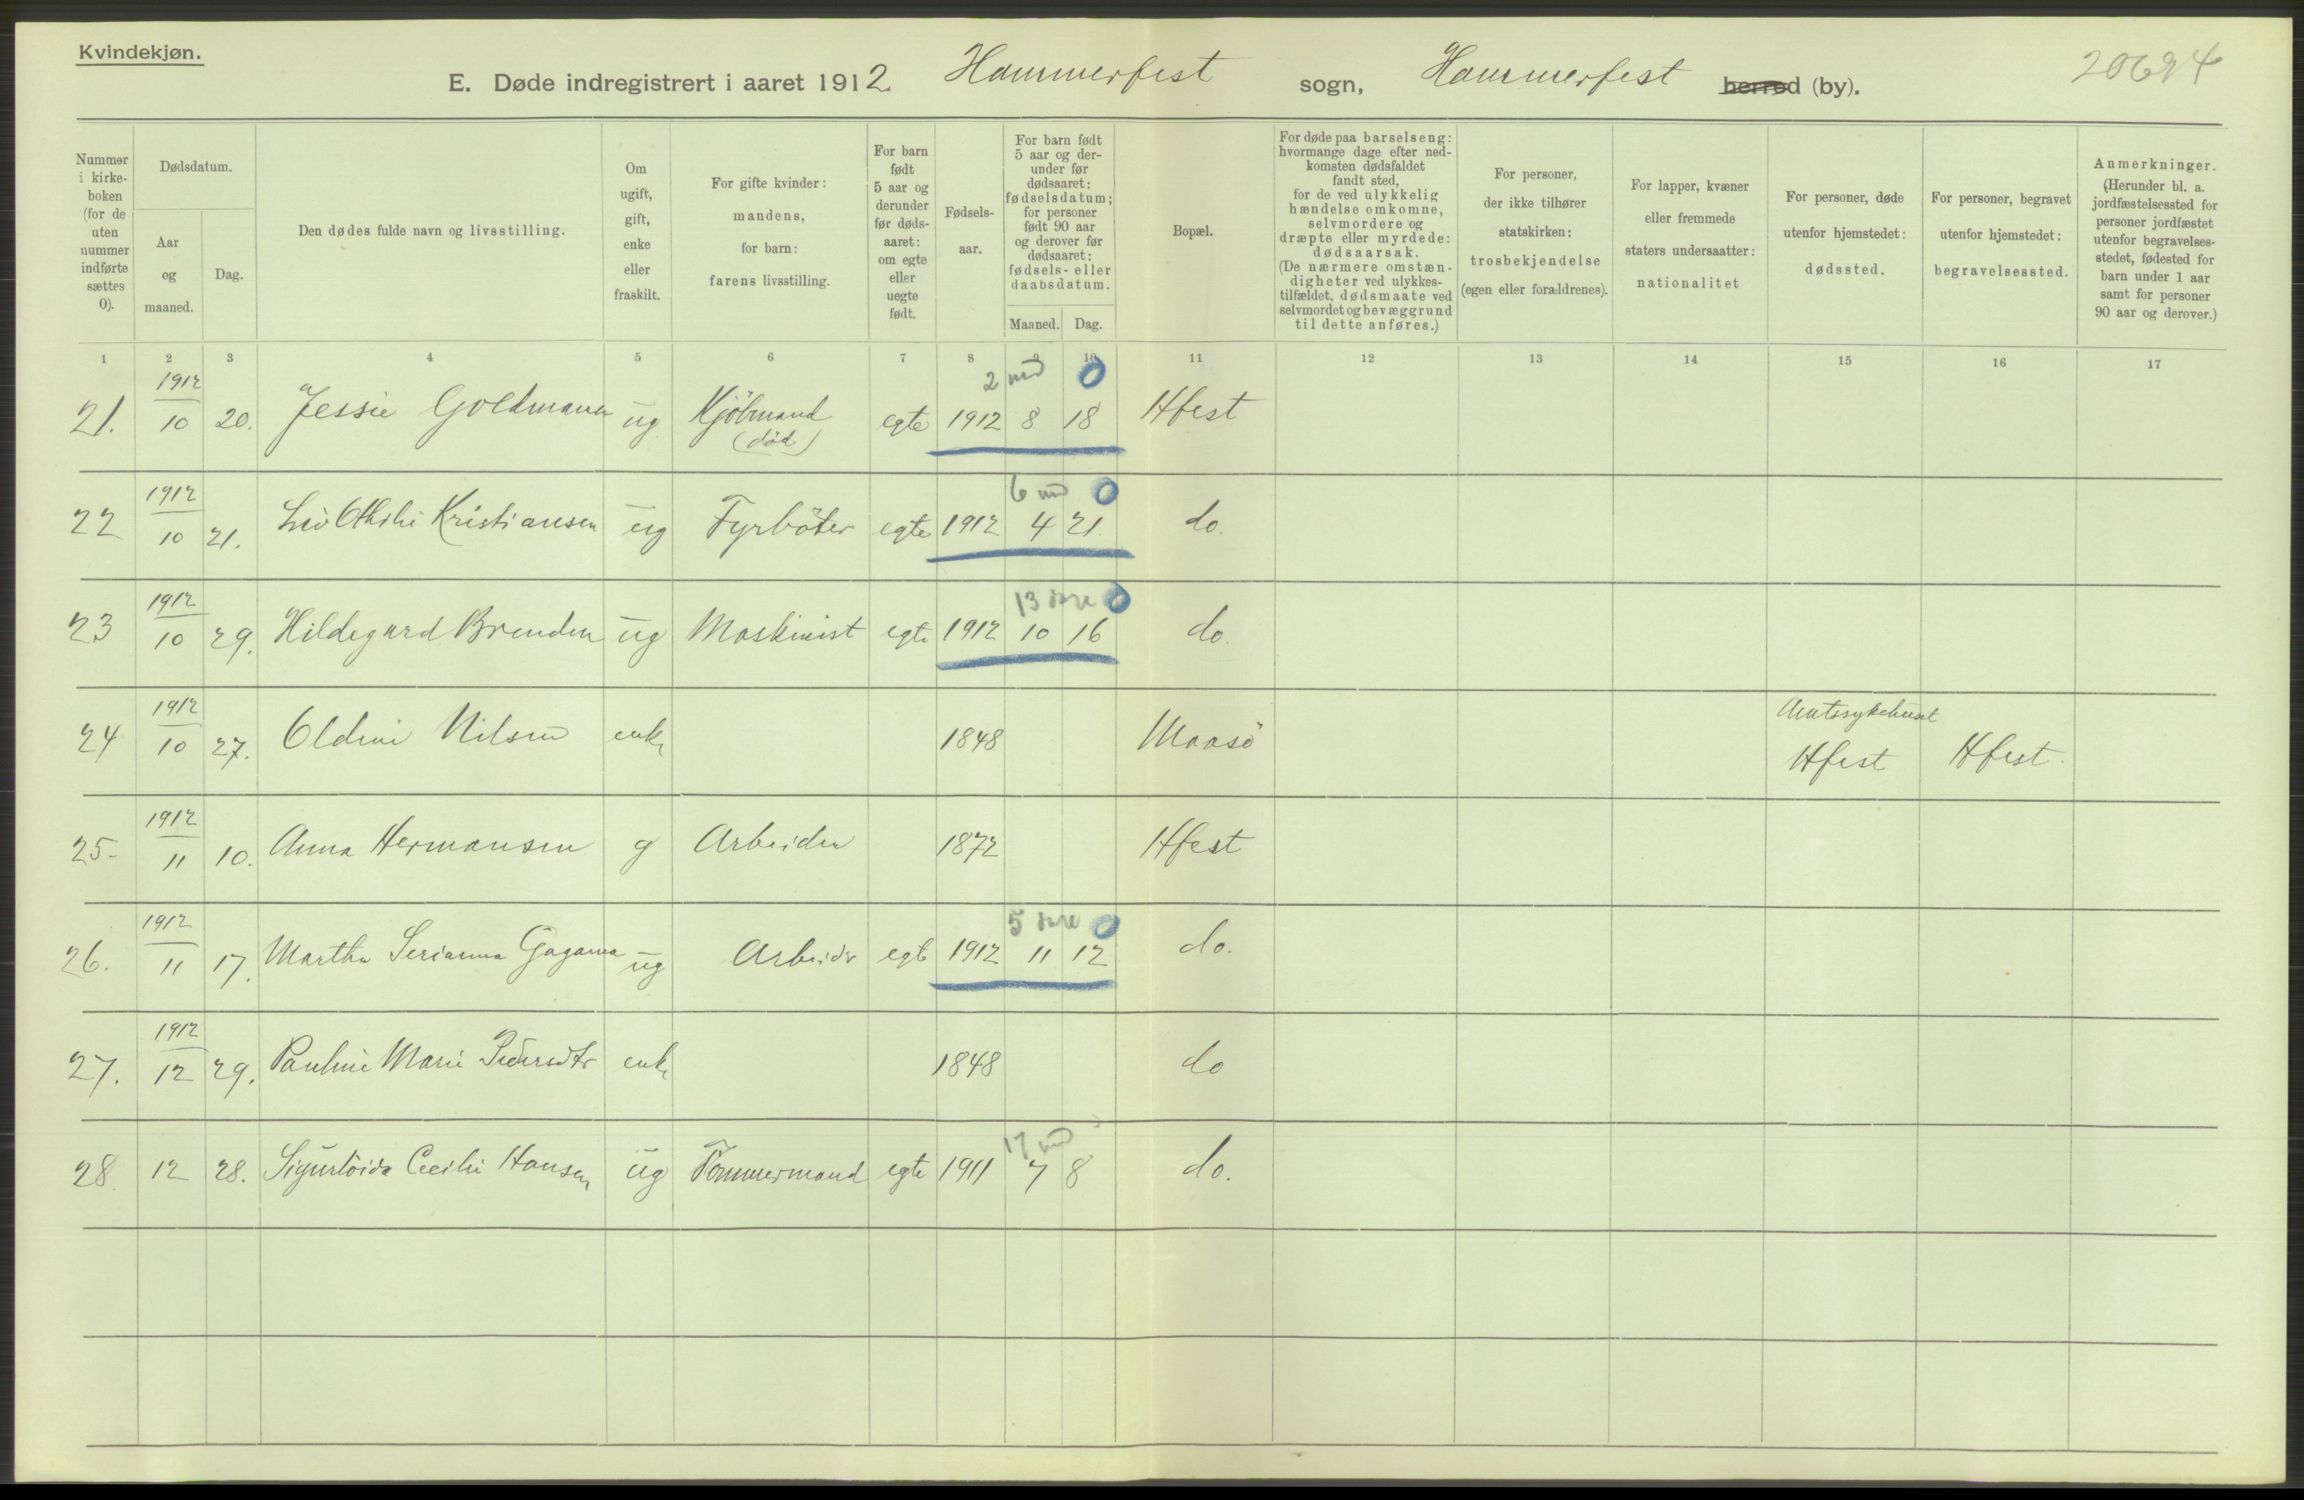 Kvindekjøn.
E. Døde indregistrert i aaret 1912 Hammerfest sogn, Hammerfest herred (by). 20694
Nummer i kirkeboken (for de uten nummer indførte sættes 0).
Dødsdatum.
Aar og maaned.
Dag.
Den dødes fulde navn og livsstilling.
Om ugift, gift, enke eller fraskilt.
For gifte kvinder: mandens, for barn: farens livsstilling.
For barn født 5 aar og derunder før dødsaaret: om egte eller uegte født.
Fødselsaar.
For barn født 5 aar og derunder før dødsaaret: fødselsdatum; for personer født 90 aar og derover før dødsaaret: fødsels- eller daabsdatum.
Maaned. Dag.
Bopæl.
For døde paa barselseng: hvormange dage efter nedkomsten dødsfaldet fandt sted, for de ved ulykkelig hændelse omkomne, selvmordere og dræpte eller myrdede: dødsaarsak. (De nærmere omstændigheter ved ulykkestilfældet, dødsmaate ved selvmordet og bevæggrund til dette anføres.)
For personer, der ikke tilhører statskirken: trosbekjendelse (egen eller forældrenes).
For lapper, kvæner eller fremmede staters undersaatter: nationalitet
For personer, døde utenfor hjemstedet: dødssted.
For personer, begravet utenfor hjemstedet: begravelsessted.
Anmerkninger. (Herunder bl. a. jordfæstelsessted for personer jordfæstet utenfor begravelsesstedet, fødested for barn under 1 aar samt for personer 90 aar og derover.)
1 2 3 4 5 6 7 8 9 10 11 12 13 14 15 16 17
2 md 0
21. 1912 10 20. Jessie Goldmann ug Kjöbmand (död) egte 1912 8 18 Hfest
6 md 0
22 1912 10 21. Liv Othilie Kristiansen ug Fyrböter egte 1912 4 21. do.
13 0
23 1912 10 29. Hildegard Brenden ug Maskinist egte 1912 10 16 do.
24 1912 10 27. Oldine Nilsen enke 1848 Maasö Amtssykehuset Hfest Hfest.
25. 1912 11 10. Anna Hermansen g Arbeider 1872 Hfest
5 0
26. 1912 11 17. Martha Serianna ug Arbeider egte 1912 11 12 do.
27. 1912 12 29. Pauline Marie Pedersdtr enke 1848 do
17 md
28. 12 28. Cecilie Hansen ug Tömmermand egte 1911 7 8 do.